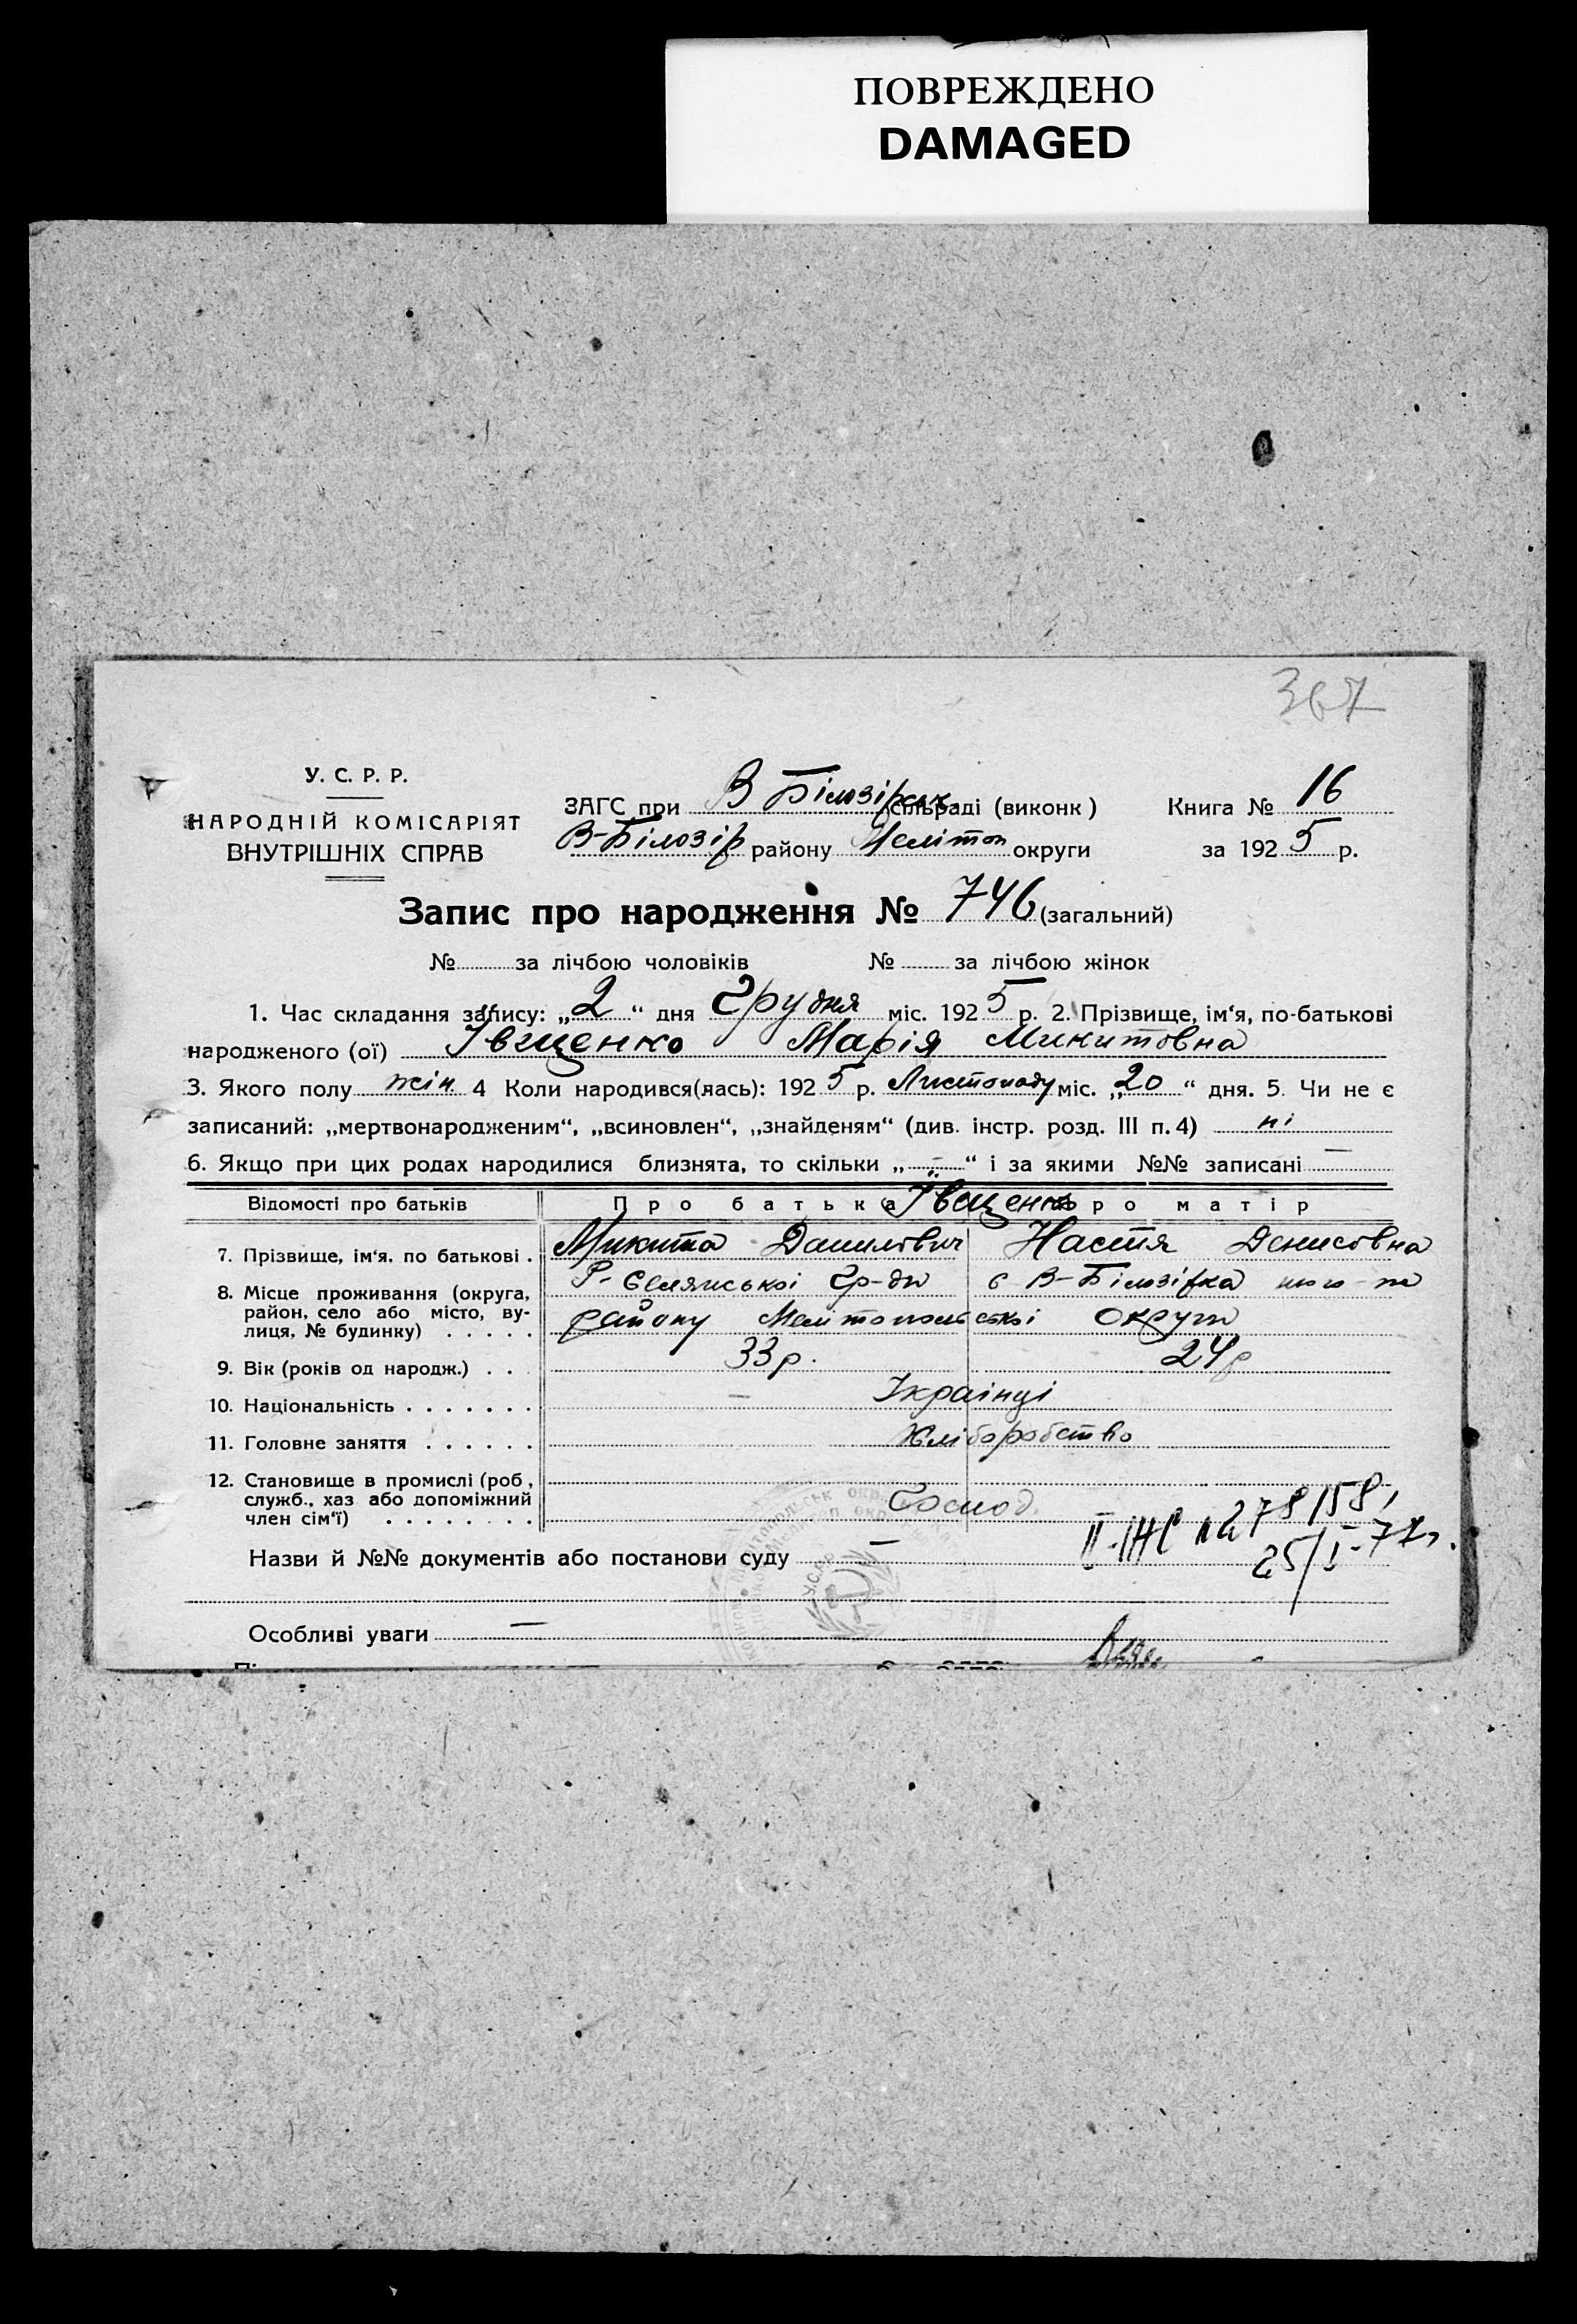 ПОВРЕЖДЕНО
DAMAGED
367
У. С. Р. Р.
НАРОДНІЙ КОМІСАРІЯТ
ВНУТРІШНІХ СПРАВ
ЗАГС при В Білозірськ. сільраді (виконк) Книга № 16
В-Білозір району Мелітоп округи за 1925 р.
Запис про народження № 746 (загальний)
№ за лічбою чоловіків № за лічбою жінок
1. Час складання запису: „2“ дня Грудня міс. 1925 р. 2. Прізвище, ім‘я, по-батькові
народженого (ої) Іващенко Марія Микитовна
3. Якого полу жін 4 Коли народився(лась): 1925 р. Листопаду міс. „20“ дня. 5. Чи не є
записаний: „мертвонародженим“, „всиновлен“, „знайденям“ (див. інстр. розд. III п. 4) ні
6. Якщо при цих родах народилися близнята, то скільки „-“ і за якими №№ записані —
Відомості про батьків Про батька Іващенко Про матір
7. Прізвище, ім‘я. по батькові . Микита Данилович Настя Денисовна
8. Місце проживання (округа, район, село або місто, вулиця, № будинку) . . . . . Р- Селянської Гр-ди с В-Білозірка того-ж
району Мелітопольської Округи
9. Вік (років од народж.) . . 33 р. 24 р
10. Національність . . . . . . . — Українці
11. Головне заняття . . . . . . Хліборобство
12. Становище в промислі (роб, служб., хаз або допоміжний член сім‘ї) . . . . . . . . Господ.
Назви й №№ документів або постанови суду —
II-ЖС № 278158,
25/I-77г.
У.С.Р.Р.
Особливі уваги —